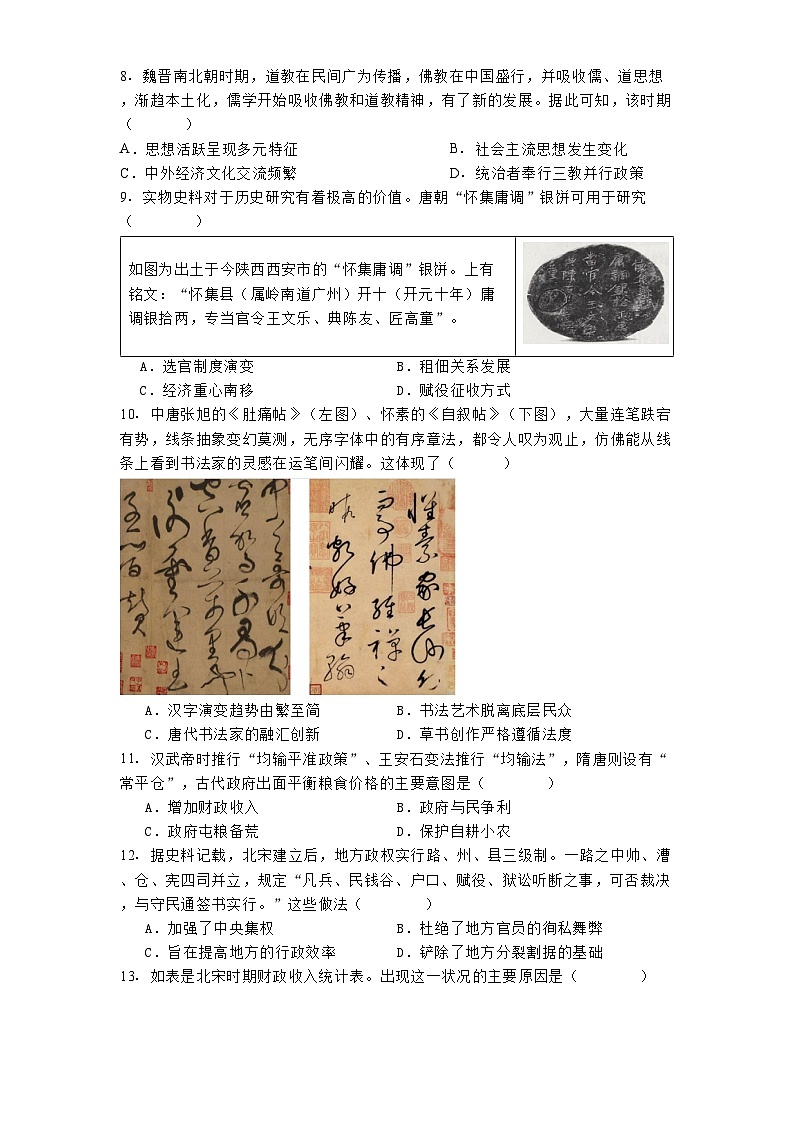 8．魏晋南北朝时期，道教在民间广为传播，佛教在中国盛行，并吸收儒、道思想
，渐趋本土化，儒学开始吸收佛教和道教精神，有了新的发展。据此可知，该时期
（　　）
A．思想活跃呈现多元特征　B．社会主流思想发生变化
C．中外经济文化交流频繁　D．统治者奉行三教并行政策
9．实物史料对于历史研究有着极高的价值。唐朝“怀集庸调”银饼可用于研究
（　　）
如图为出土于今陕西西安市的“怀集庸调”银饼。上有
铭文：“怀集县（属岭南道广州）开十（开元十年）庸
调银拾两，专当官令王文乐、典陈友、匠高童”。
A．选官制度演变　B．租佃关系发展
C．经济重心南移　D．赋役征收方式
10．中唐张旭的《肚痛帖》（左图）、怀素的《自叙帖》（下图），大量连笔跌宕
有势，线条抽象变幻莫测，无序字体中的有序章法，都令人叹为观止，仿佛能从线
条上看到书法家的灵感在运笔间闪耀。这体现了（　　）
怀素家长沙幼
事佛经禅之
暇颇好笔翰
A．汉字演变趋势由繁至简　B．书法艺术脱离底层民众
C．唐代书法家的融汇创新　D．草书创作严格遵循法度
11．汉武帝时推行“均输平准政策”、王安石变法推行“均输法”，隋唐则设有“
常平仓”，古代政府出面平衡粮食价格的主要意图是（　　）
A．增加财政收入　B．政府与民争利
C．政府屯粮备荒　D．保护自耕小农
12．据史料记载，北宋建立后，地方政权实行路、州、县三级制。一路之中帅、漕
、仓、宪四司并立，规定“凡兵、民钱谷、户口、赋役、狱讼听断之事，可否裁决
，与守民通签书实行。”这些做法（　　）
A．加强了中央集权　B．杜绝了地方官员的徇私舞弊
C．旨在提高地方的行政效率　D．铲除了地方分裂割据的基础
13．如表是北宋时期财政收入统计表。出现这一状况的主要原因是（　　）